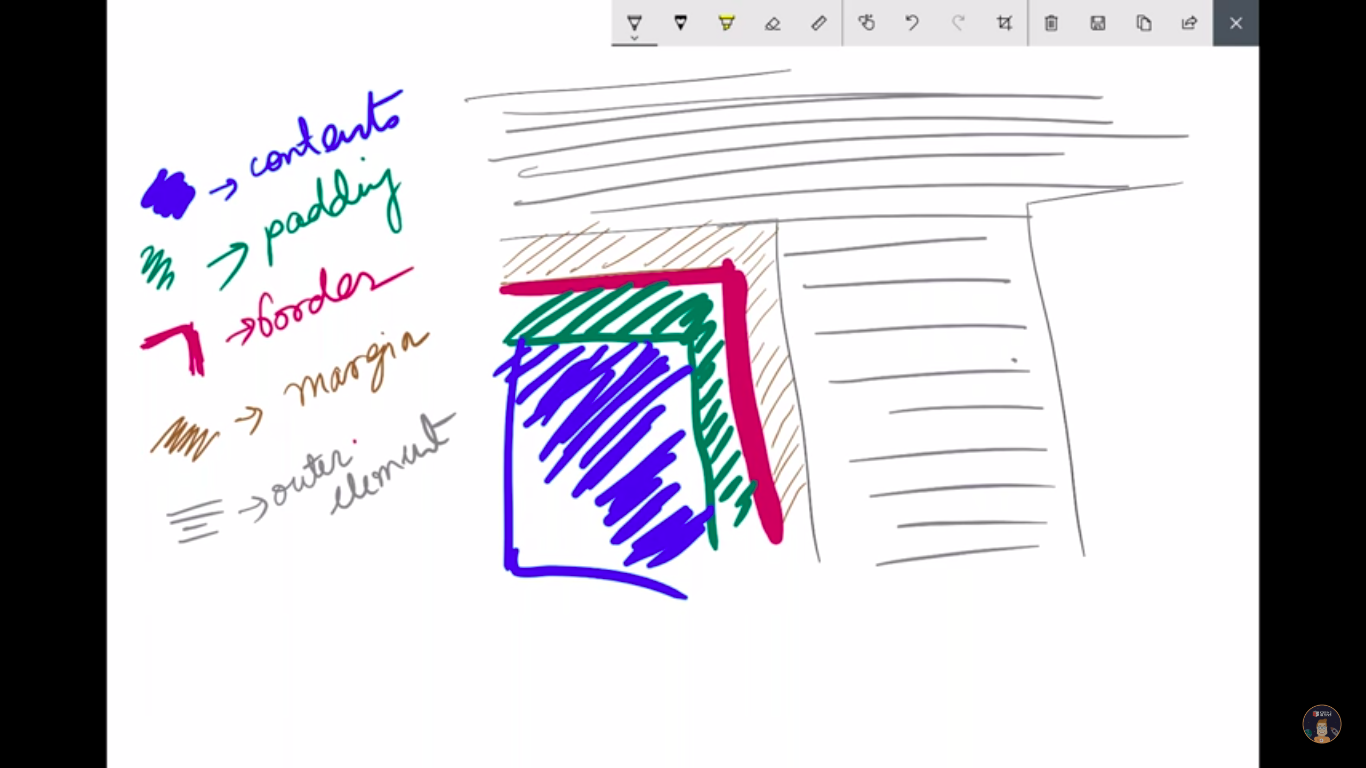 → contents
→ padding
→ border
→ margin
→ outer
element